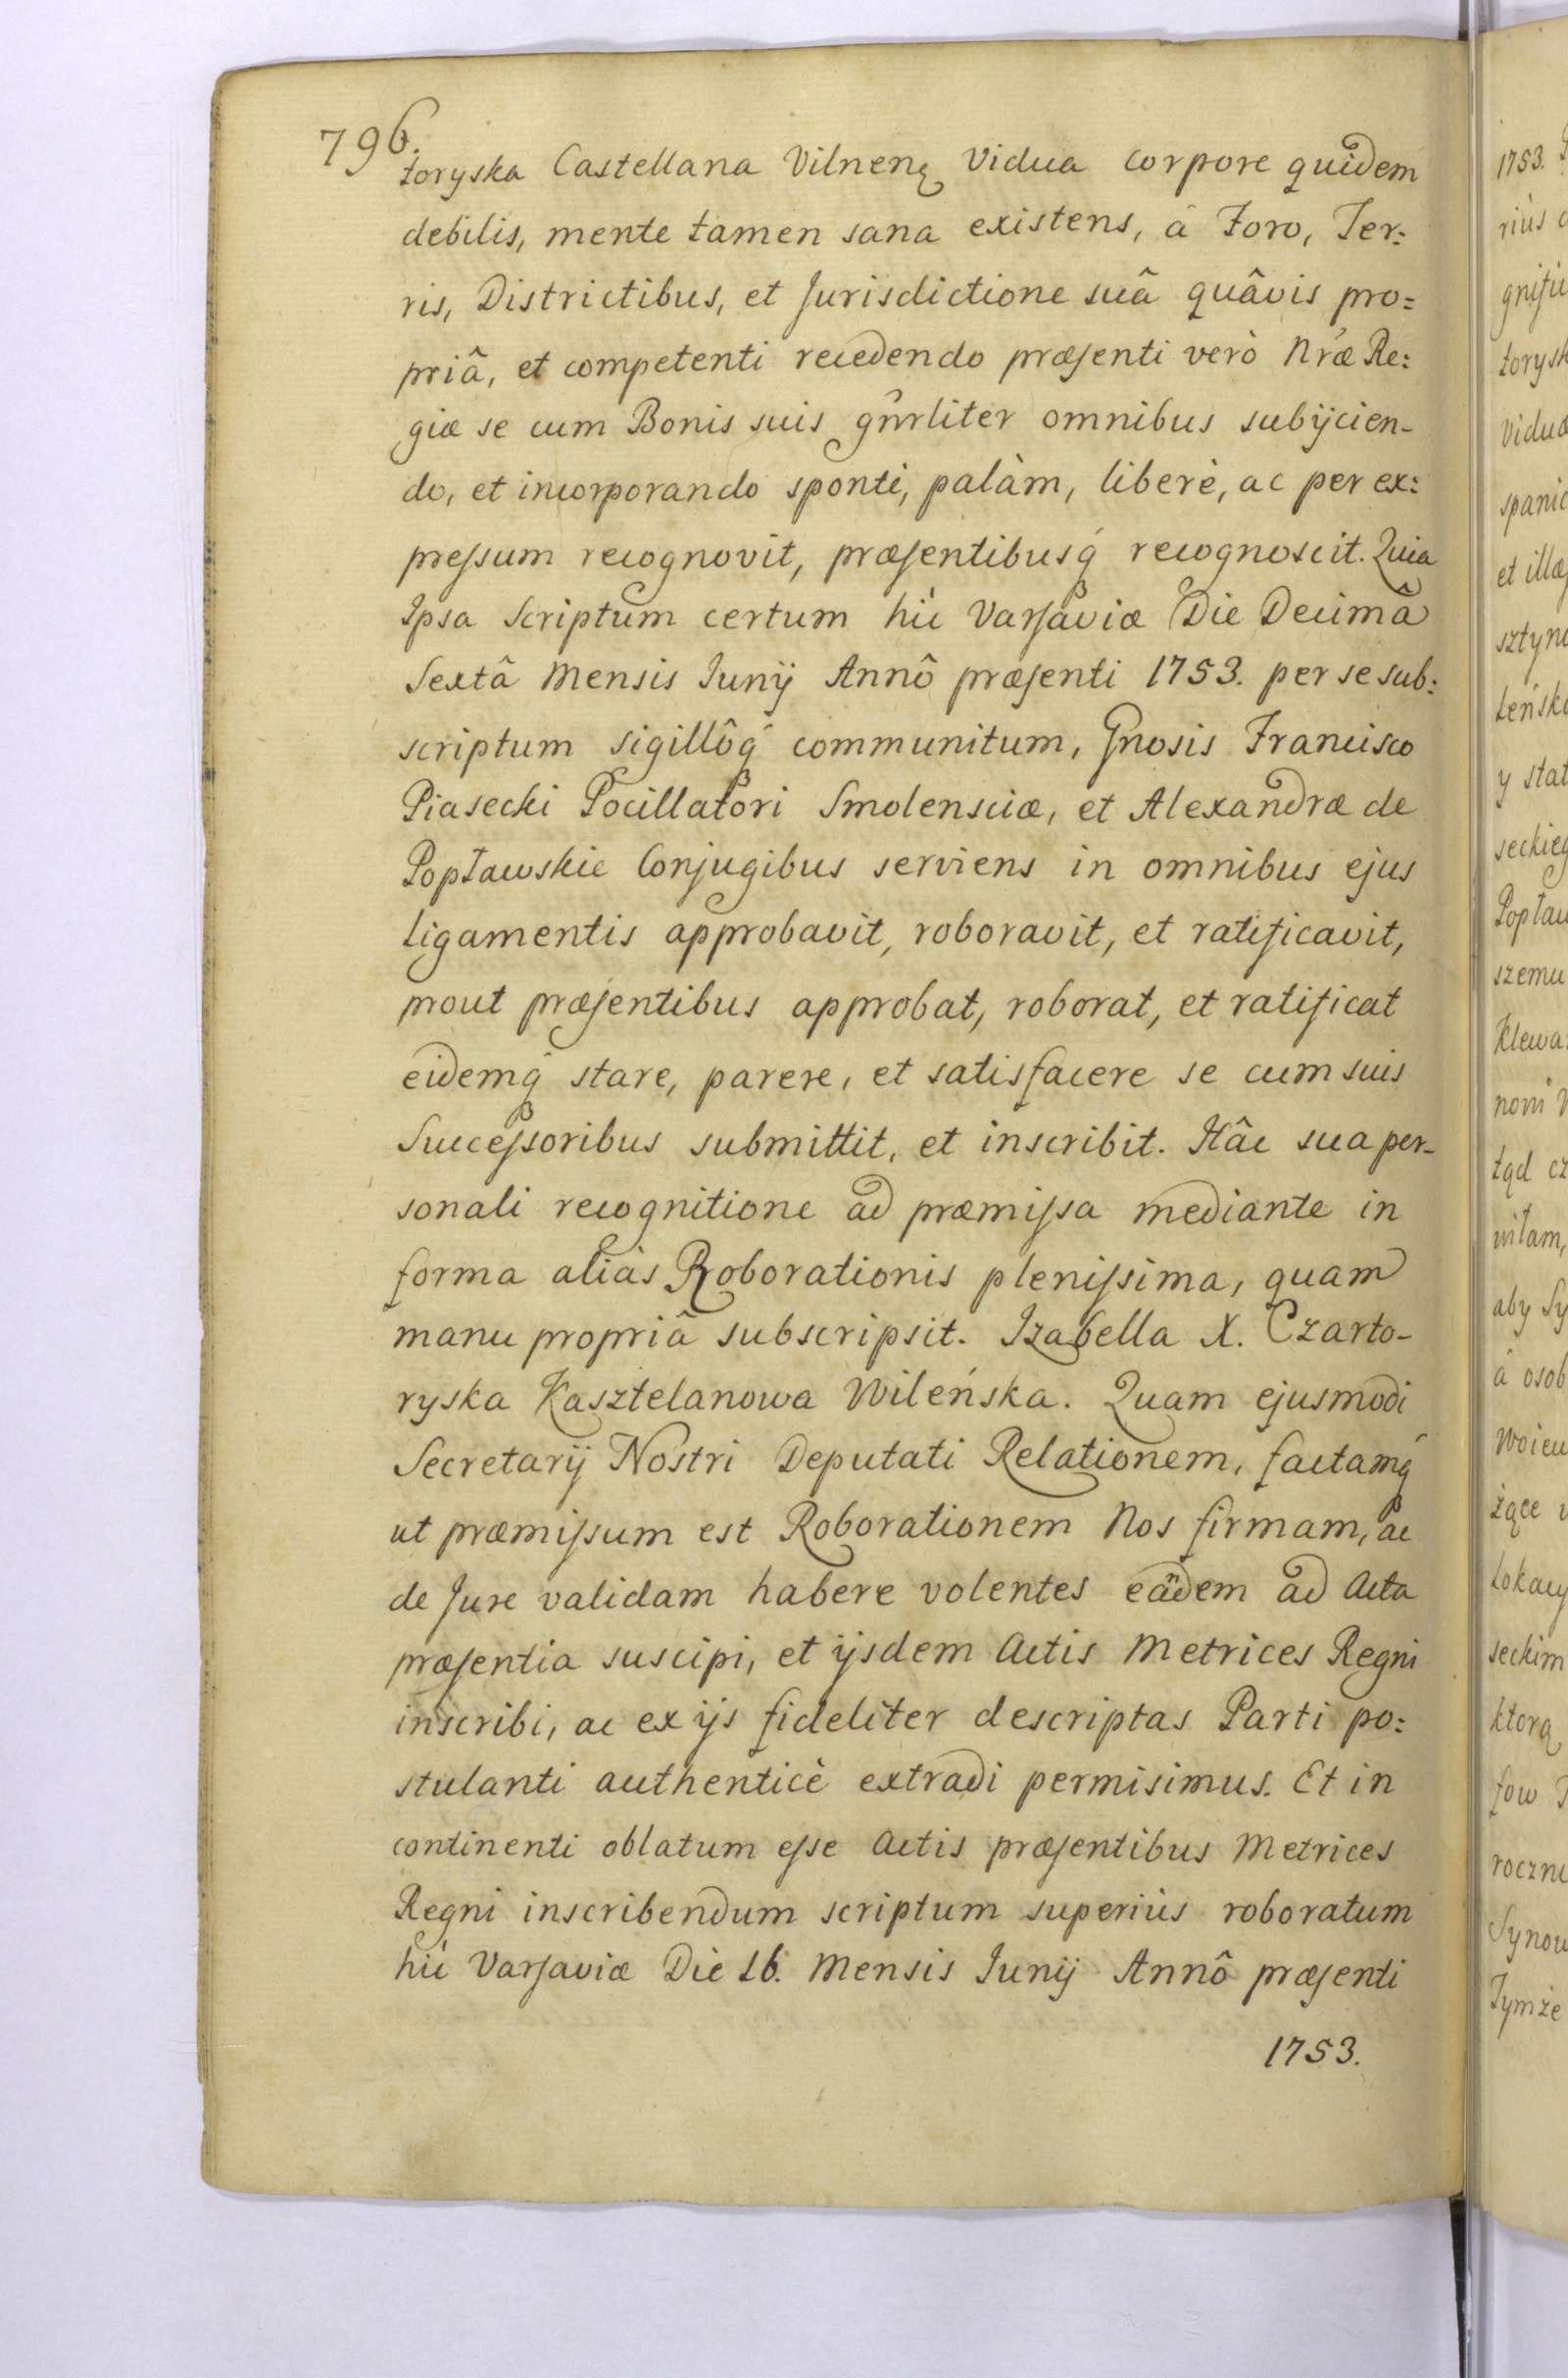 796.
toryska Castellana Vilnenę Vidua corpore quidem
debilis, mente tamen sana existens, â Foro, Ter:
ris, Districtibus, et Jurisdictione suâ quâvis pro=
priâ, et competenti recedendo præsenti verò Nræ Re:
giæ se cum Bonis suis gn̂rliter omnibus subijcien-
do, et incorporando spontè, palàm, liberè, ac per ex:
pressum recognovit, præsentibusq́ recognoscit. Quia
Ipsa Scriptum certum hìc Varsaviæ Die Decimâ
Sextâ Mensis Junij Annô præsenti 1753. per se sub:
scriptum sigillôq́ communitum, Gnosis Francisco
Piasecki Pocillatori Smolensciæ, et Alexandræ de
Popławskie Conjugibus serviens in omnibus ejus
ligamentis approbavit, roboravit, et ratificavit,
prout præsentibus approbat, roborat, et ratificat
eidemq́ stare, parere, et satisfacere se cum suis
Successoribus submittit, et inscribit. Hâc sua per-
sonali recognitione ad præmissa mediante in
forma aliàs Roborationis plenissima, quam
manu propriâ subscripsit. Izabella X. Czarto-
ryska Kasztelanowa Wileńska. Quam ejusmodi
Secretarij Nostri Deputati Relationem, factamq́
ut præmissum est Roborationem Nos firmam, ac
de Jure validam habere volentes eãdem ad Acta
præsentia suscipi, et ijsdem Actis Metrices Regni
inscribi, ac ex ijs fideliter descriptas Parti po:
stulanti authenticè extradi permisimus. Et in
continenti oblatum esse Actis præsentibus Metrices
Regni inscribendum scriptum superiùs roboratum
hìc Varsaviæ Die 16. Mensis Junij Annô præsenti
1753.